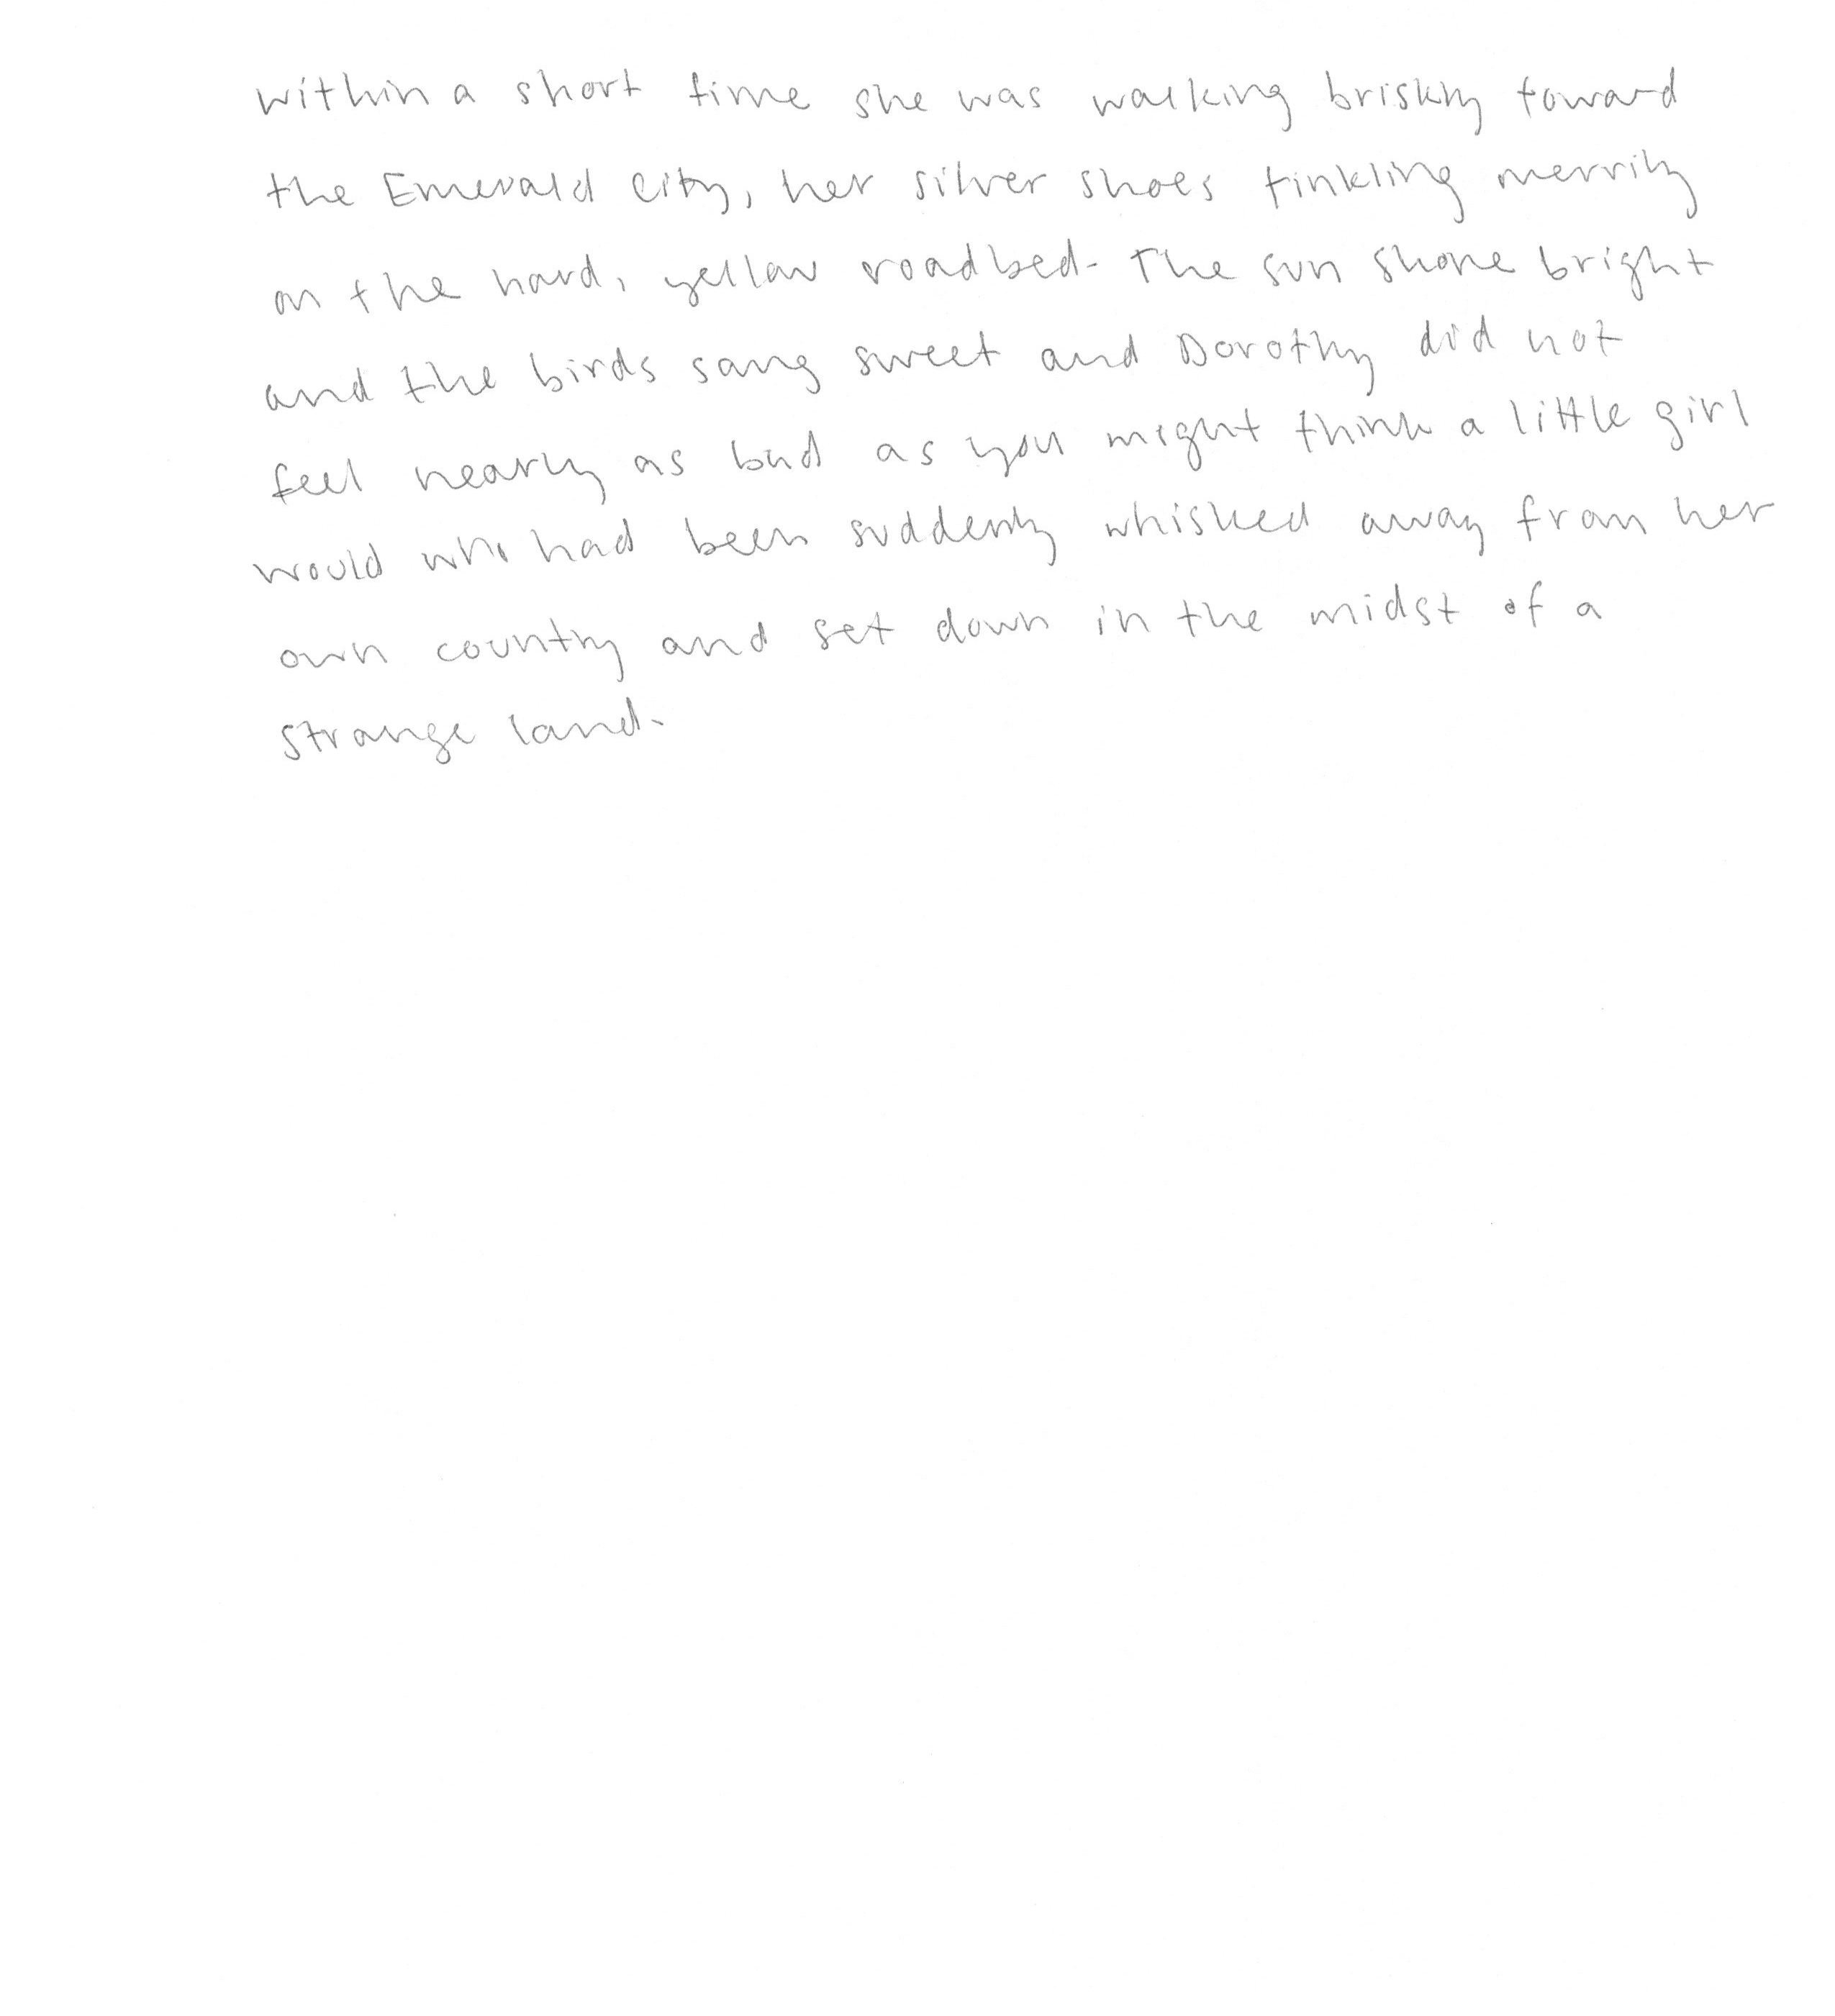 Within a short time she was walking briskly toward
the Emerald City, her silver shoes tinkling merrily
on the hard, yellow roadbed. The sun shone bright
and the birds sang sweet and Dorothy did not
feel nearly as bad as you might think a little girl
would who had been suddenly whisked away from her
own country and set down in the midst of a
strange land.